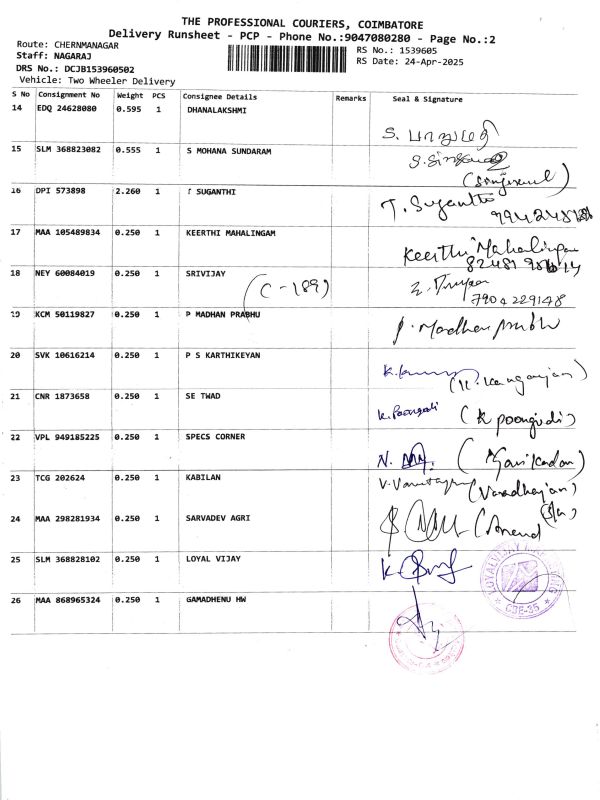 THE PROFESSIONAL COURIERS, COIMBATORE
Delivery Runsheet - PCP - Phone No.:9047080280 - Page No.:2
Route: CHERNMANAGAR
RS No.: 1539605
Staff: NAGARAJ
RS Date: 24-Apr-2025
DRS No.: DCJB153960502
Vehicle: Two Wheeler Delivery
S No Consignment No Weight PCS Consignee Details Remarks Seal & Signature
14 EDQ 24628080 0.595 1 DHANALAKSHMI
15 SLM 368823082 0.555 1 S MOHANA SUNDARAM
16 DPI 573898 2.260 1 T SUGANTHI T. Suganthi
17 MAA 105489834 0.250 1 KEERTHI MAHALINGAM Keerthi Mahalingam
18 NEY 60084019 0.250 1 SRIVIJAY (C-189)
7904229148
19 KCM 50119827 0.250 1 P MADHAN PRABHU P. Madhan Prabhu
20 SVK 10616214 0.250 1 P S KARTHIKEYAN
21 CNR 1873658 0.250 1 SE TWAD K. Poongodi (K poongodi)
22 VPL 949185225 0.250 1 SPECS CORNER
23 TCG 202624 0.250 1 KABILAN (Varadhajan)
24 MAA 298281934 0.250 1 SARVADEV AGRI (Anand
25 SLM 368828102 0.250 1 LOYAL VIJAY
CBE-35
26 MAA 868965324 0.250 1 GAMADHENU HW